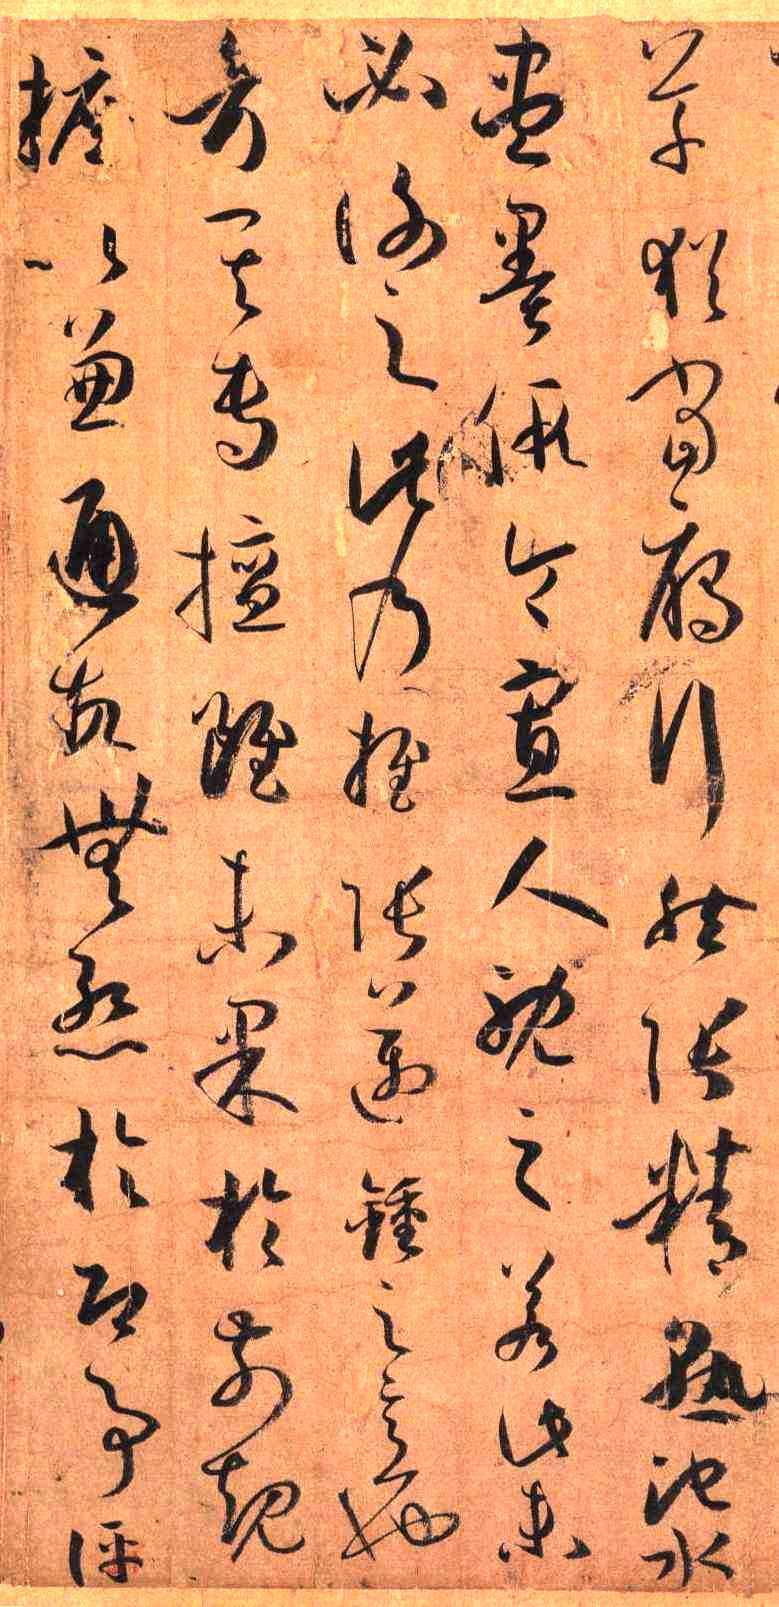 草猶當鴈行然張精熟池水
盡墨假令寡人耽之若此未
必謝之此乃推張邁鍾之意也
考其專擅雖未果於前規
摭以兼通故無慚於即事評